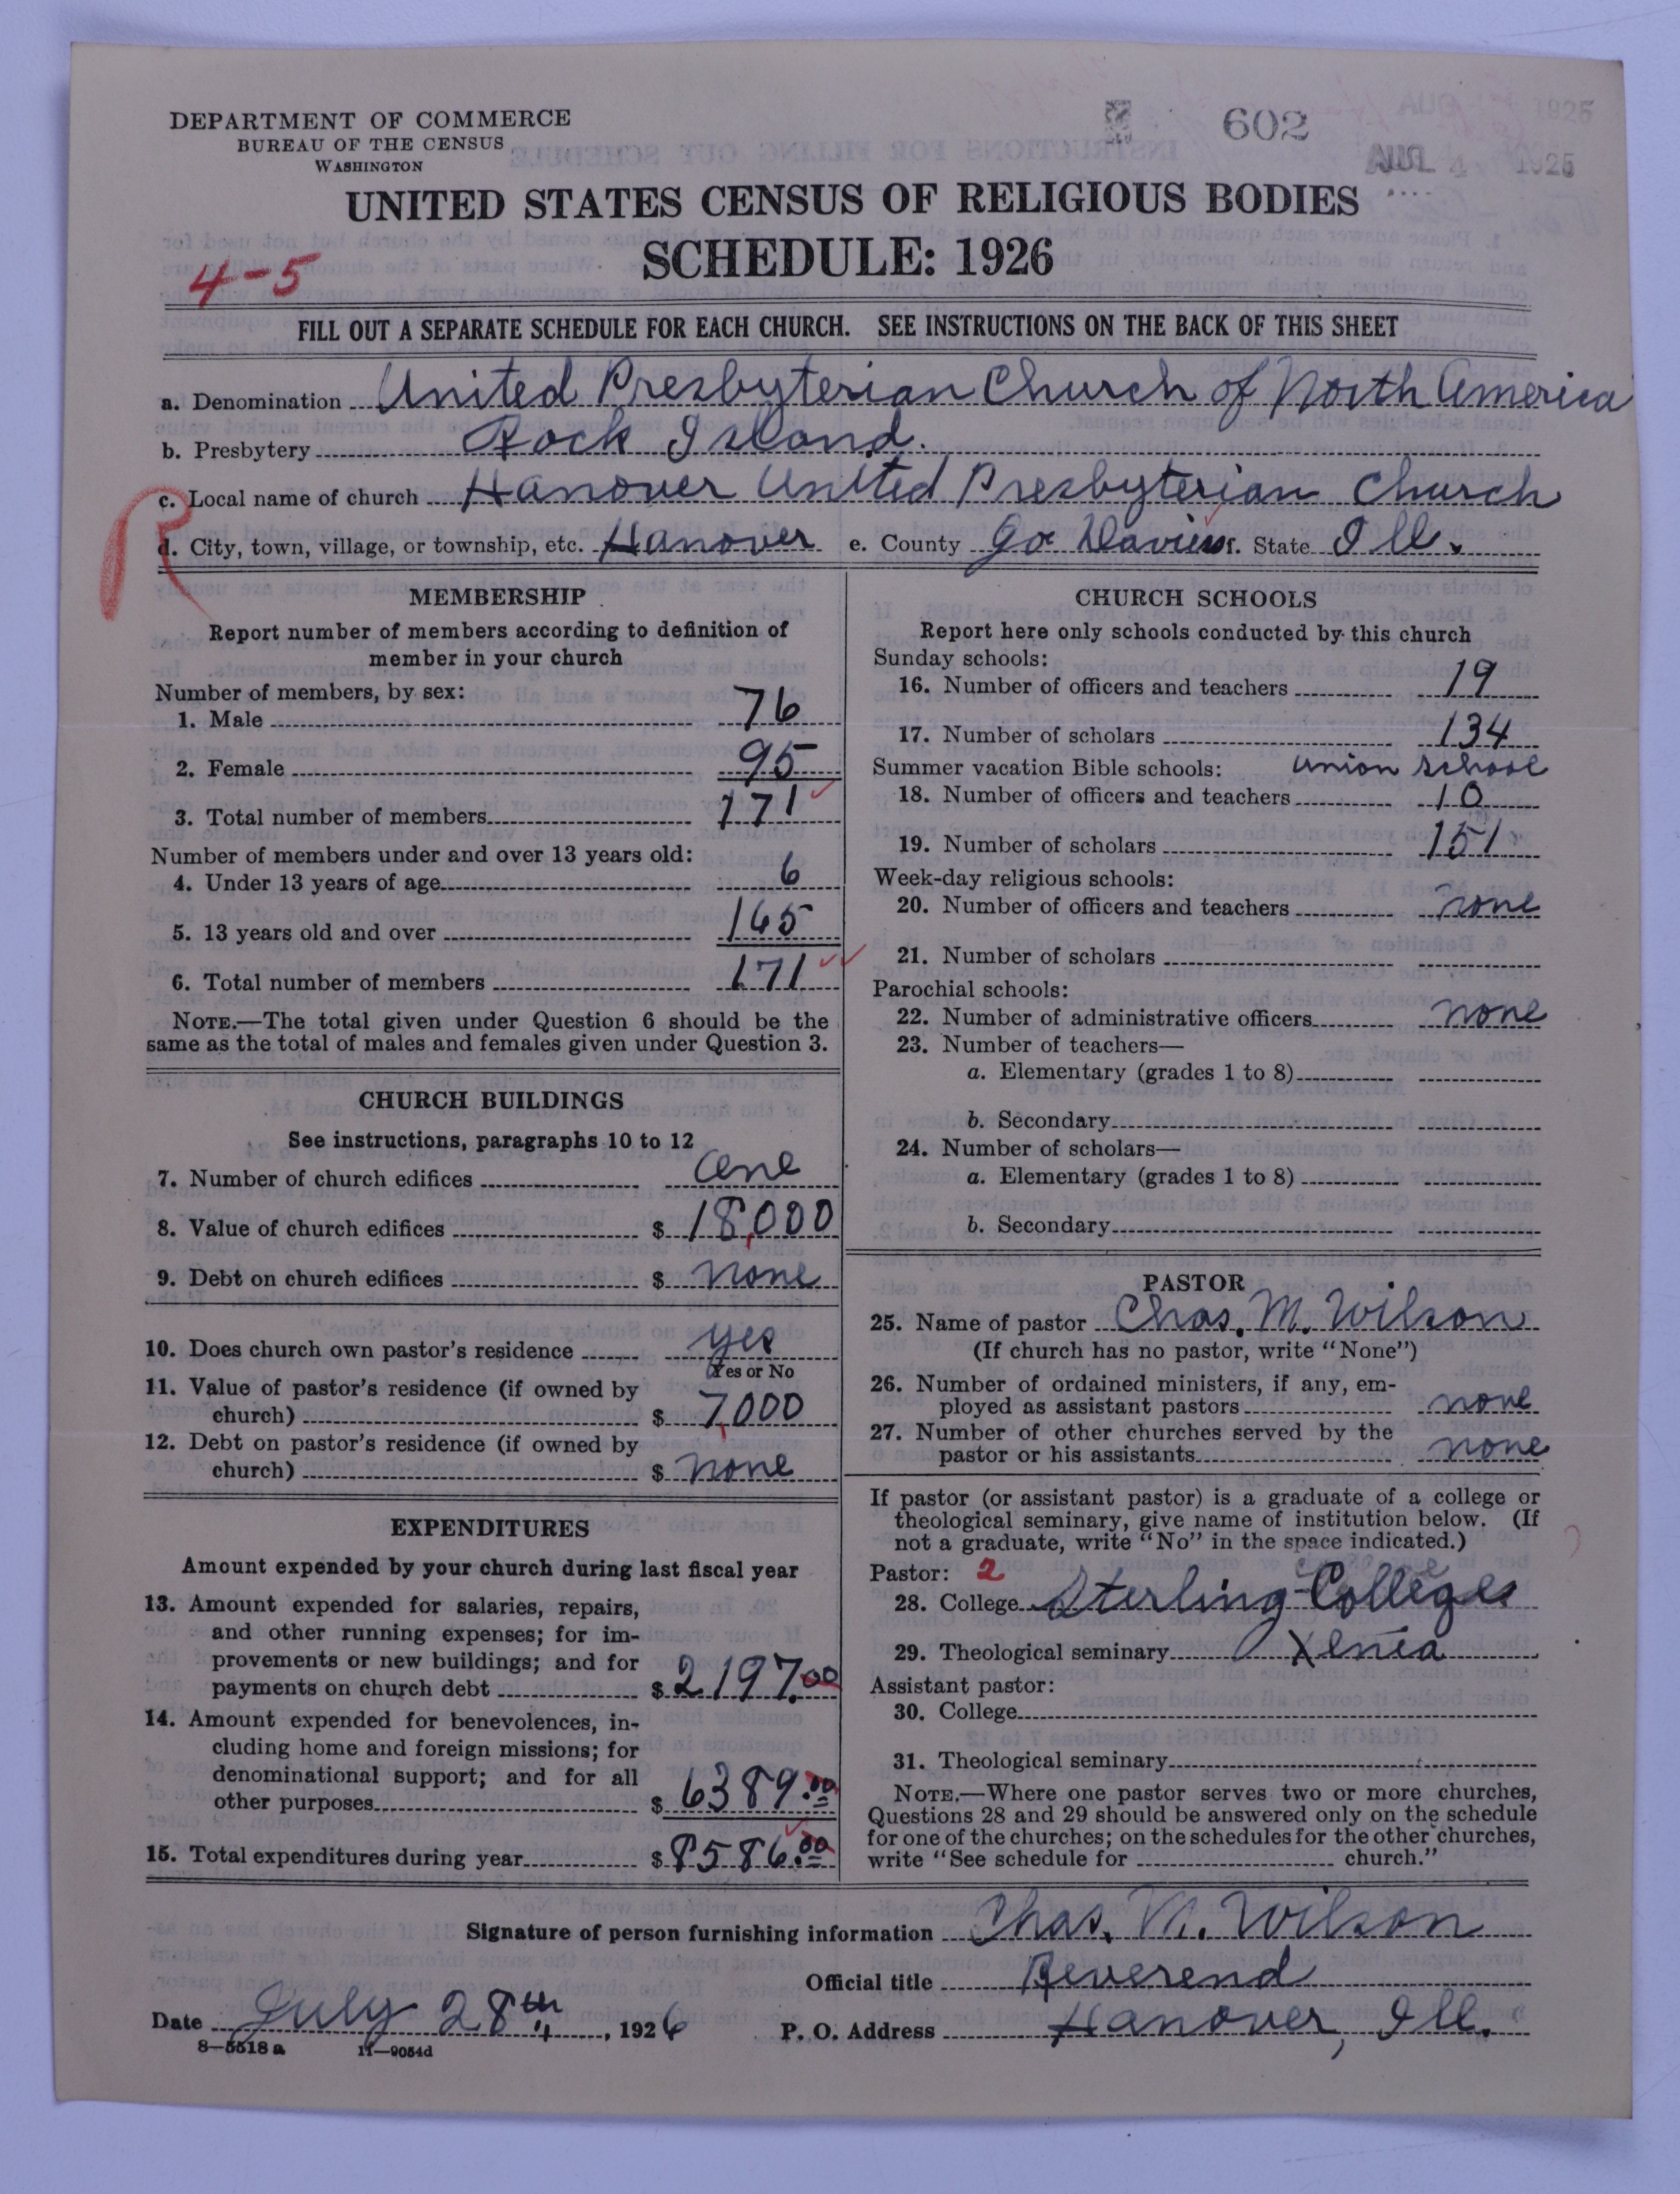 DEPARTMENT OF COMMERCE
BUREAU OF THE CENSUS
WASHINGTON
602
AUG 4 1926
UNITED STATES CENSUS OF RELIGIOUS BODIES
SCHEDULE: 1926
4-5
FILL OUT A SEPARATE SCHEDULE FOR EACH CHURCH. SEE INSTRUCTIONS ON THE BACK OF THIS SHEET
a. Denomination United Presbyterian Church of North America
b. Presbytery Rock Island.
c. Local name of church Hanover United Presbyterian Church
d. City, town, village, or township, etc. Hanover e. County Jo Daviess f. State Ill.
R
MEMBERSHIP
Report number of members according to definition of
member in your church
Number of members, by sex:
1. Male 76
2. Female 95
3. Total number of members 171
Number of members under and over 13 years old:
4. Under 13 years of age 6
5. 13 years old and over 165
6. Total number of members 171
NOTE.—The total given under Question 6 should be the
same as the total of males and females given under Question 3.
CHURCH BUILDINGS
See instructions, paragraphs 10 to 12
7. Number of church edifices One
8. Value of church edifices $ 18,000
9. Debt on church edifices $ None
10. Does church own pastor's residence yes
Yes or No
11. Value of pastor's residence (if owned by
church) $ 7,000
12. Debt on pastor's residence (if owned by
church) $ None
EXPENDITURES
Amount expended by your church during last fiscal year
13. Amount expended for salaries, repairs,
and other running expenses; for im-
provements or new buildings; and for
payments on church debt $ 2197.00
14. Amount expended for benevolences, in-
cluding home and foreign missions; for
denominational support; and for all
other purposes $ 6389.00
15. Total expenditures during year $ 8586.00
CHURCH SCHOOLS
Report here only schools conducted by this church
Sunday schools:
16. Number of officers and teachers 19
17. Number of scholars 134
Summer vacation Bible schools: Union School
18. Number of officers and teachers 10
19. Number of scholars 151
Week-day religious schools:
20. Number of officers and teachers None
21. Number of scholars
Parochial schools:
22. Number of administrative officers None
23. Number of teachers—
a. Elementary (grades 1 to 8)
b. Secondary
24. Number of scholars—
a. Elementary (grades 1 to 8)
b. Secondary
PASTOR
25. Name of pastor Chas. M. Wilson
(If church has no pastor, write "None")
26. Number of ordained ministers, if any, em-
ployed as assistant pastors None
27. Number of other churches served by the
pastor or his assistants None
If pastor (or assistant pastor) is a graduate of a college or
theological seminary, give name of institution below. (If
not a graduate, write "No" in the space indicated.)
Pastor: 2
28. College Sterling Colleges
29. Theological seminary Xenia
Assistant pastor:
30. College
31. Theological seminary
NOTE.—Where one pastor serves two or more churches,
Questions 28 and 29 should be answered only on the schedule
for one of the churches; on the schedules for the other churches,
write "See schedule for church."
Signature of person furnishing information Chas. M. Wilson
Official title Reverend
Date July 28th, 1926 P. O. Address Hanover, Ill.
8—5518 a 11—9054d